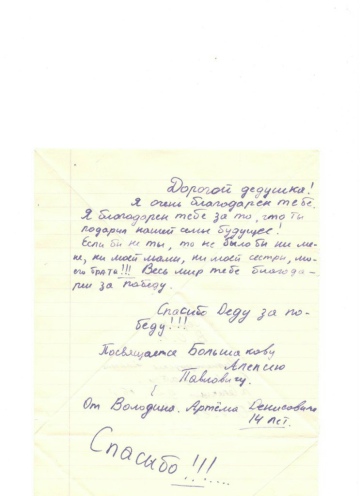 Дорогой дедушка!
Я очень благодарен тебе.
Я благодарен тебе за то, что ты
подарил нашей семье будущее!
Если би не ты, то не было би ни ме-
ня, ни моей мами, ни моей сестри, мо-
его брата!!! Весь мир тебе благода-
рен за победу.
Спасибо Деду за по-
беду!!!
Посвящается Большакову
Алексею
Павловичу.
От Володина Артёма Денисовича
14 лет.
Спасыбо!!!